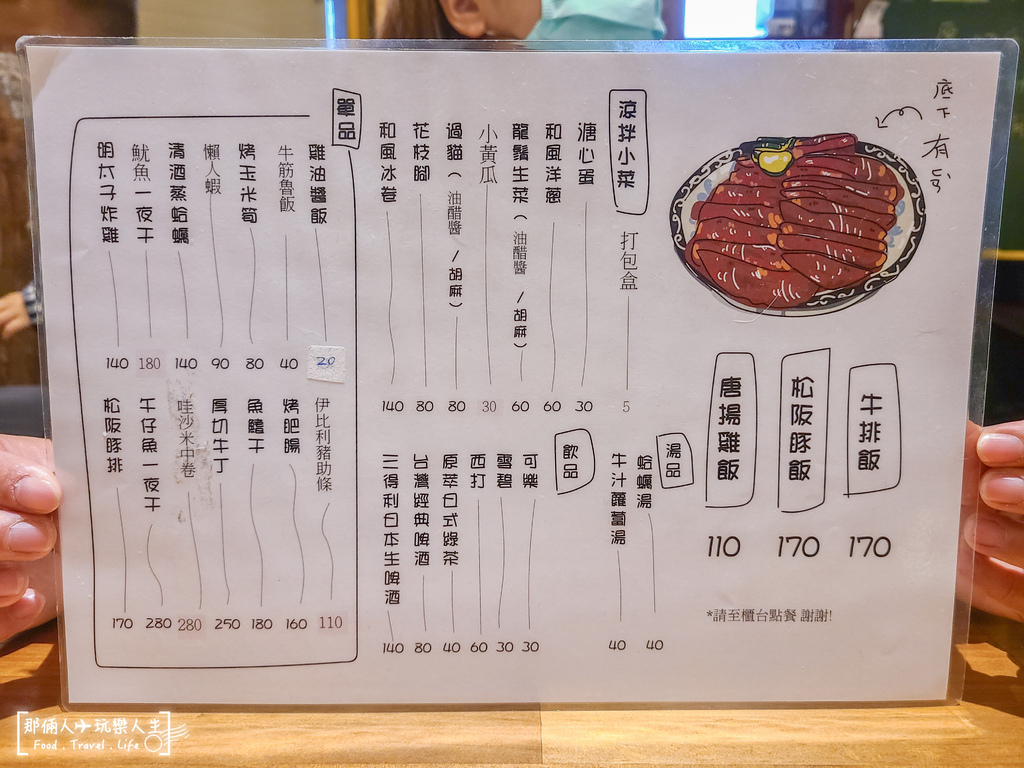 底下有字
牛排飯 170
松阪豚飯 170
唐揚雞飯 110
*請至櫃台點餐 謝謝!
涼拌小菜
打包盒 5
溏心蛋 30
和風洋蔥 60
龍鬚生菜(油醋醬/胡麻) 60
小黃瓜 30
過貓(油醋醬/胡麻) 80
花枝腳 80
和風冰卷 140
湯品
蛤蠣湯 40
牛汁蘿蔔湯 40
飲品
可樂 30
雪碧 30
西打 60
原萃日式綠茶 40
台灣經典啤酒 80
三得利日本生啤酒 140
單品
雞油醬飯 20
牛筋魯飯 40
烤玉米筍 80
懶人蝦 90
清酒蒸蛤蠣 140
魷魚一夜干 180
明太子炸雞 140
伊比利豬肋條 110
烤肥腸 160
魚鰭干 180
厚切牛丁 250
哇沙米中卷 280
午仔魚一夜干 280
松阪豚排 170
那倆人✈玩樂人生
Food . Travel . Life